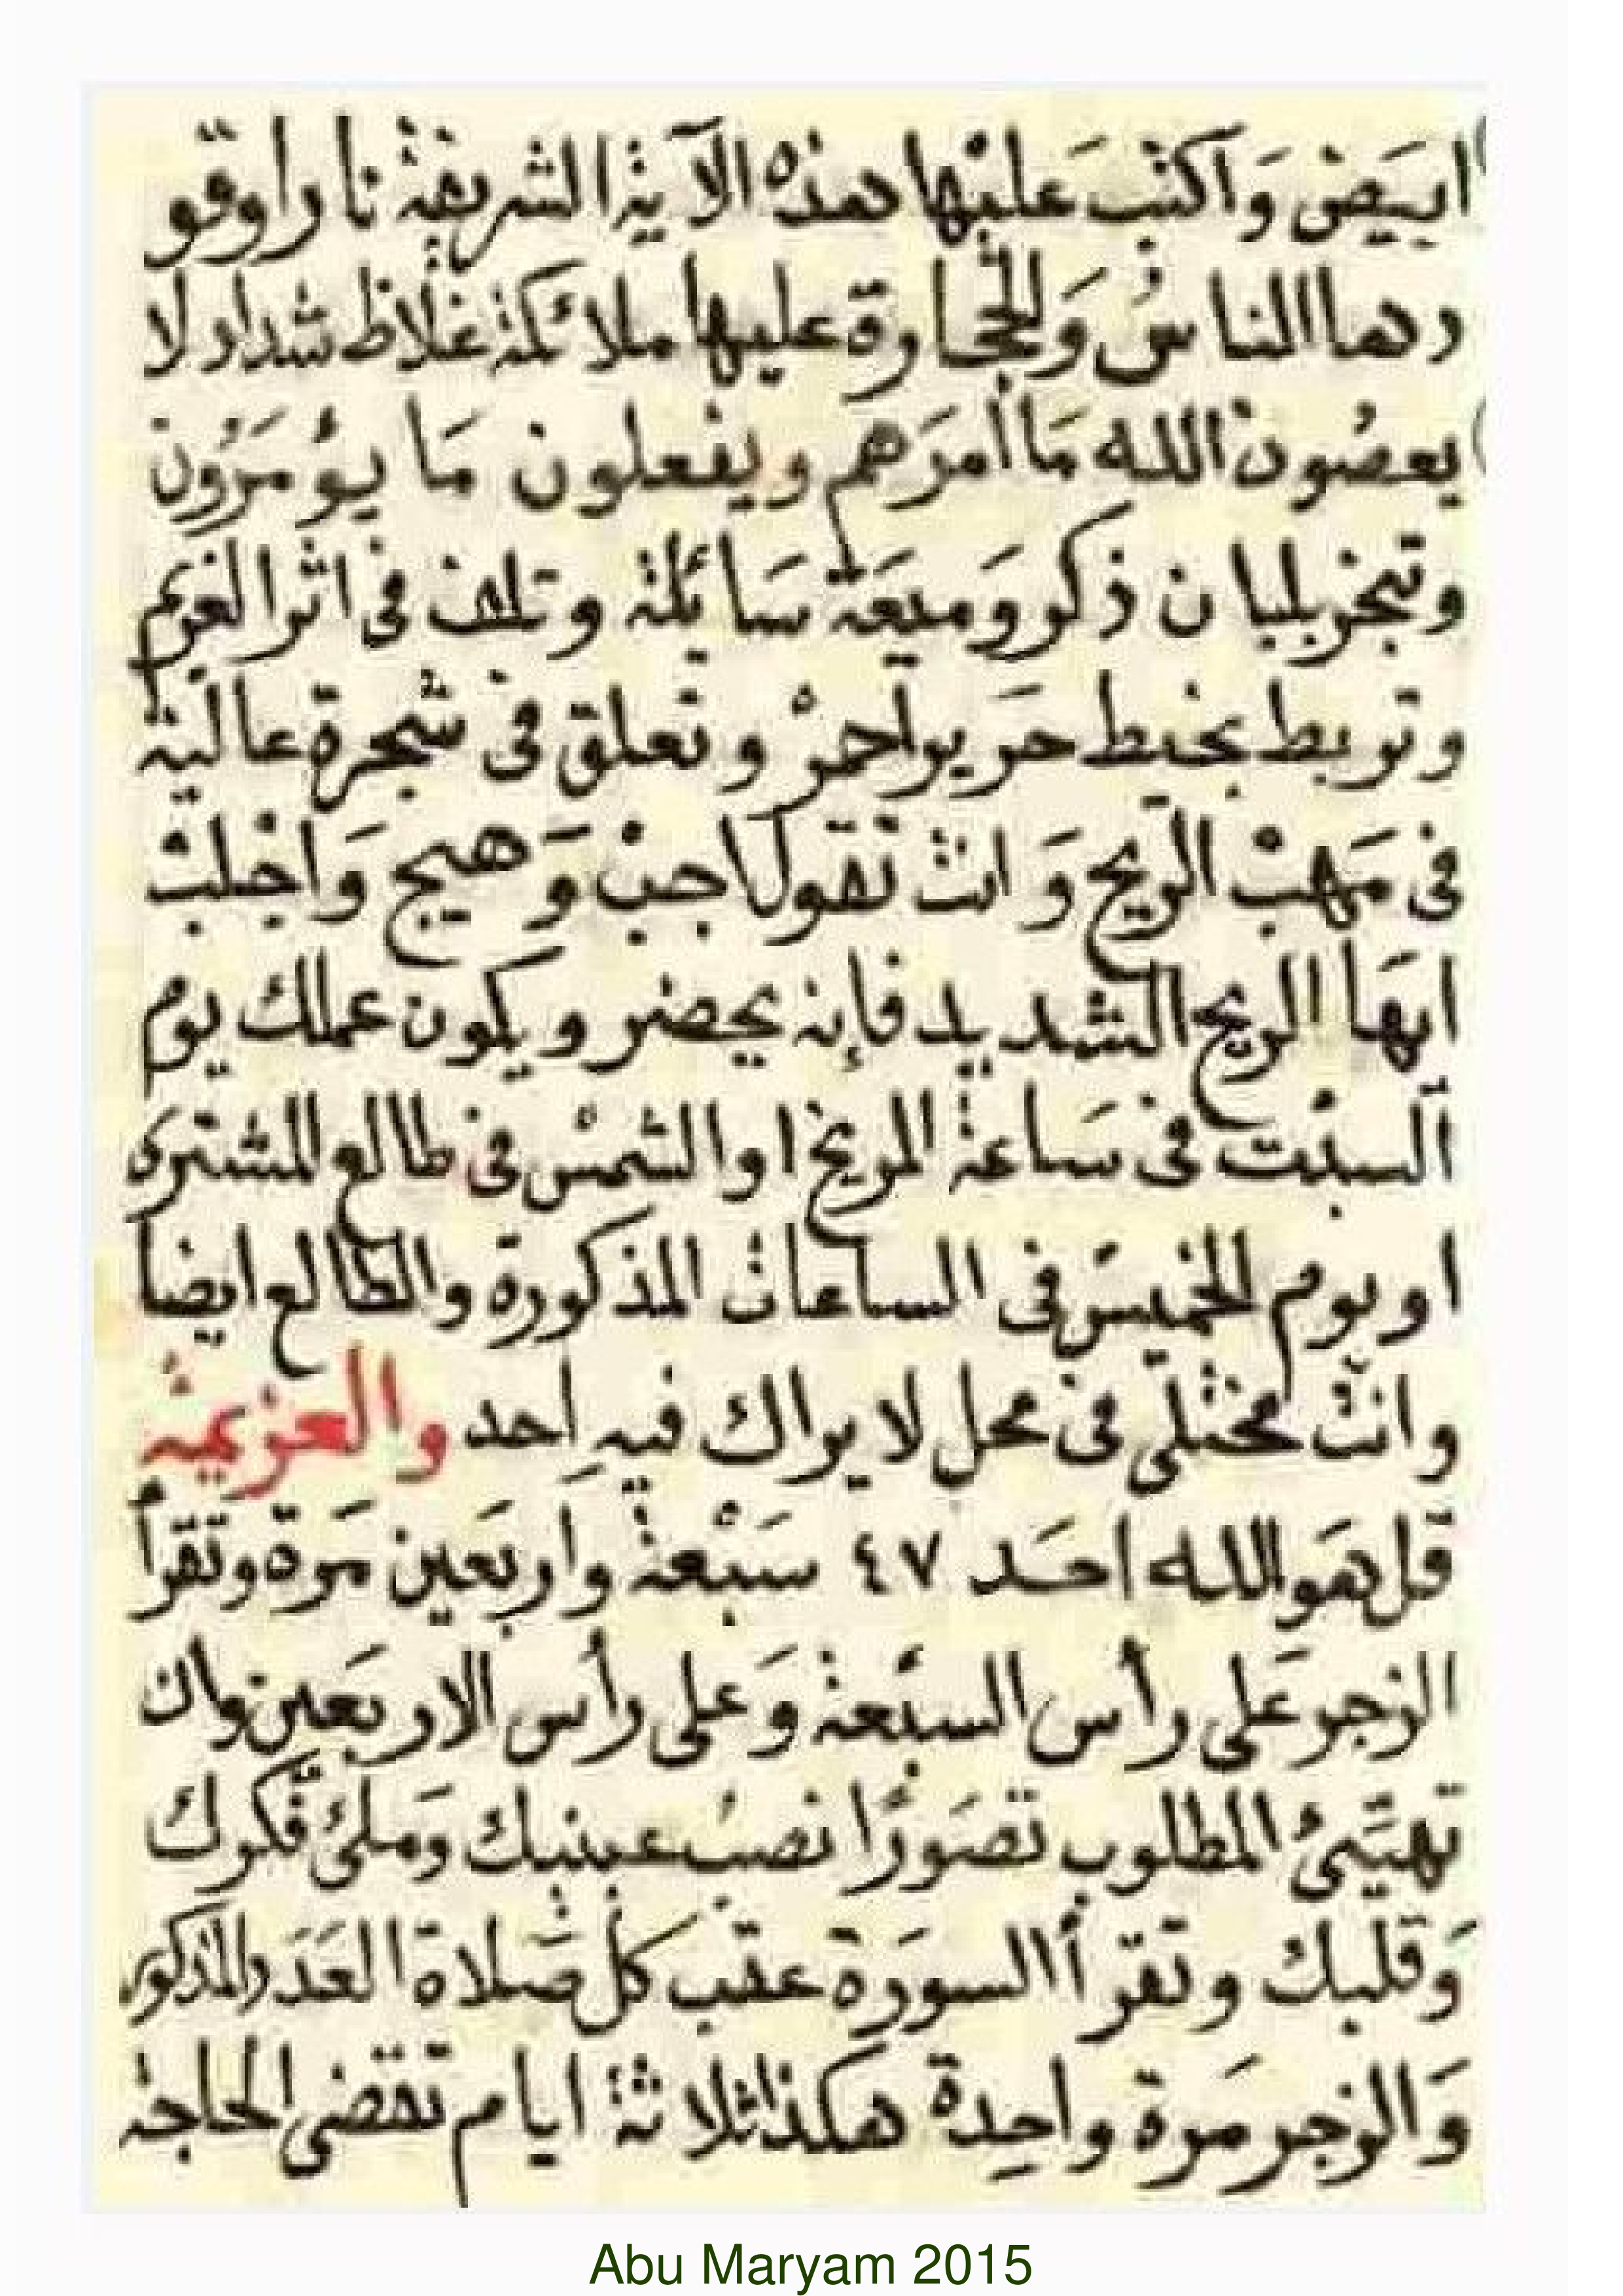 ابيَض وَاكتب عَليْها هذه الآية الشريفة نارا وقو
دها الناسُ وَالحجارة عليها ملائكة غلاظ شداد لا
يعصُون الله مَا أمرَهم ويفعلون مَا يؤمَرُون
وتبخر بلبان ذكر وَميعَة سَائلة وتلف في اثر الغريم
وتربط بخيط حَرير احمرْ وتعلق في شجرة عالية
في مَهبْ الريح وَانت تقول اجب وَهيج وَاجلبْ
ايهَا الريح الشديد فإنه يحضر ويكون عملك يوم
السبْت في سَاعة المريخ او الشمسْ في طالع المشترى
او يوم الخميس في الساعات المذكورة والطالع ايضا
وانت مختلي في محل لا يراك فيهِ احد والعزيمة
قل هوَ الله احَد ٤٧ سَبْعة واربَعين مَرة وتقرأ
الزجر عَلى رأس السبْعة وَعلى رأس الاربَعين وان
تهيّئ المطلوب تصَورًا نصب عينيك وَملئ فكرك
وَقلبك وتقرأ السورَة عقب كل صَلاة العَدَد المذكور
وَالزجر مَرة واحِدة هكذا ثلاثة ايام تقضى الحاجة
Abu Maryam 2015